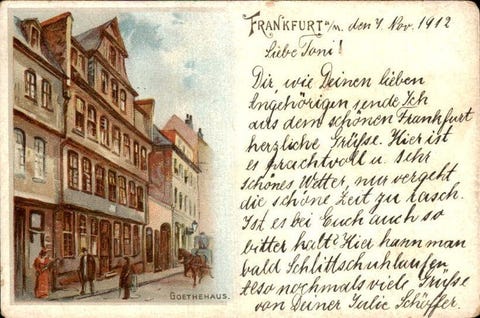 FRANKFURT a/M. den 7. Nov. 1912
Liebe Toni!
Dir, wie Deinen lieben
Angehörigen sende Ich
aus dem schönen Frankfurt
herzliche Grüsse. Hier ist
es prachtvoll u. sehr
schönes Wetter, nur vergeht
die schöne Zeit zu rasch.
Ist es bei Euch auch so
bitter kalt? Hier kann man
bald Schlittschuhlaufen
Also nochmals viele Grüsse
von Deiner Julie Schöffer.
GOETHEHAUS.